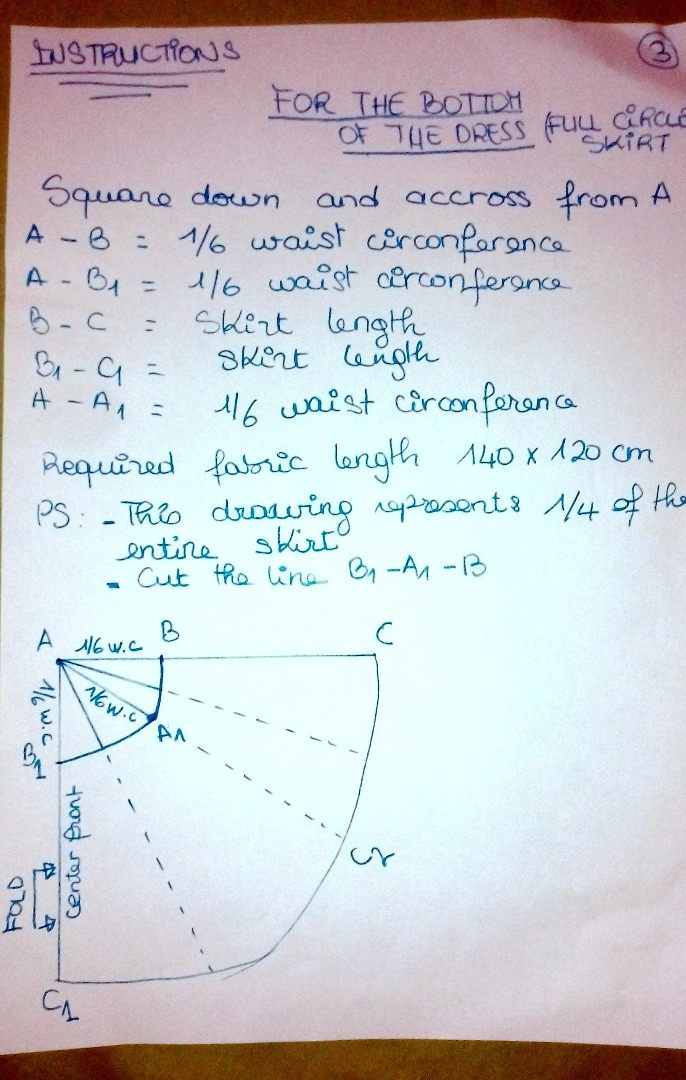 INSTRUCTIONS
3
FOR THE BOTTOM
OF THE DRESS (FULL CIRCLE
SKIRT
Square down and accross from A
A - B = 1/6 waist circonference
A - B1 = 1/6 waist circonference
B - C = Skirt length
B1 - C1 = skirt length
A - A1 = 1/6 waist circonference
Required fabric length 140 x 120 cm
PS: - This drawing represents 1/4 of the
entire skirt
- Cut the line B1 - A1 - B
A 1/6 w.c B C
1/6 w.c
1/6 w.c
A1
B1
Center front
FOLD
C1